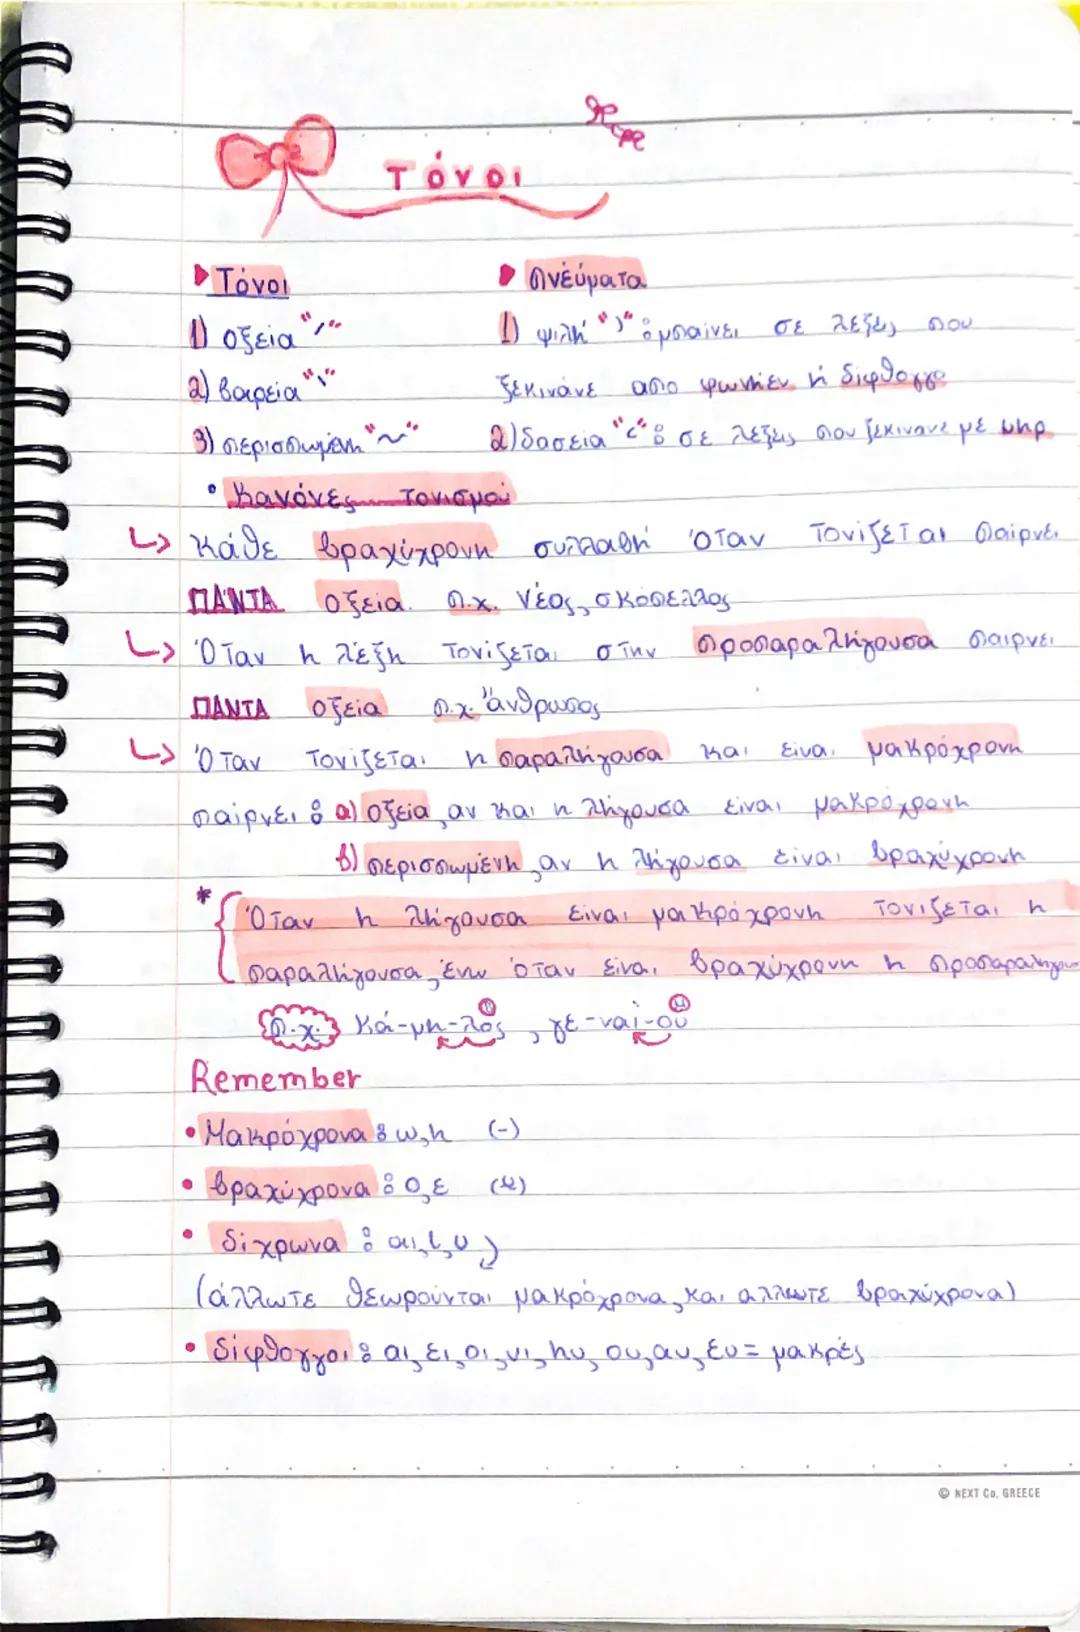 Τόνοι
Τόνοι
1) οξεία "΄"
2) βαρεία "`"
3) περισπωμένη "~"
Πνεύματα
1) ψιλή "᾿" : μπαίνει σε λέξεις που
ξεκινάνε από φωνήεν ή δίφθογγο
2) δασεία "῾" : σε λέξεις που ξεκινανε με
• Κανόνες τονισμού
↳ Κάθε βραχύχρονη συλλαβή όταν τονίζεται παίρνει
ΠΑΝΤΑ οξεία. π.χ. νέος, σκόπελλος
↳ Όταν η λέξη τονίζεται στην προπαραλήγουσα παιρνει
ΠΑΝΤΑ οξεία π.χ. ἄνθρωπος
↳ Όταν τονίζεται η παραλήγουσα και είναι μακρόχρονη
παίρνει : α) οξεία, αν και η λήγουσα είναι μακρόχρονη
β) περισπωμένη, αν η λήγουσα είναι βραχύχρονη
* Όταν η λήγουσα είναι μακρόχρονη τονίζεται η
παραλήγουσα, ένω όταν είναι βραχύχρονη η προπαραλήγου
π.χ. Κά-μη-λος, γε-ναί-ου
Remember
• Μακρόχρονα : ω, η (-)
• βραχύχρονα : ο, ε (υ)
• δίχρωνα : αι, ι, υ
(άλλωτε θεωρούνται μακρόχρονα, και αλλωτε βραχύχρονα)
• δίφθογγοι : αι, ει, οι, υι, ηυ, ου, αυ, ευ = μακρές
© NEXT Co. GREECE